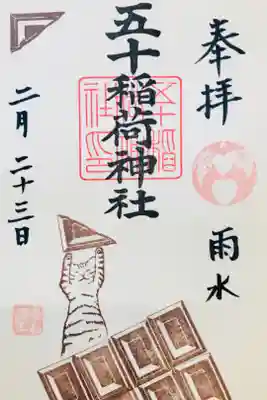 奉拝
雨水
五十稲荷神社
二月二十三日